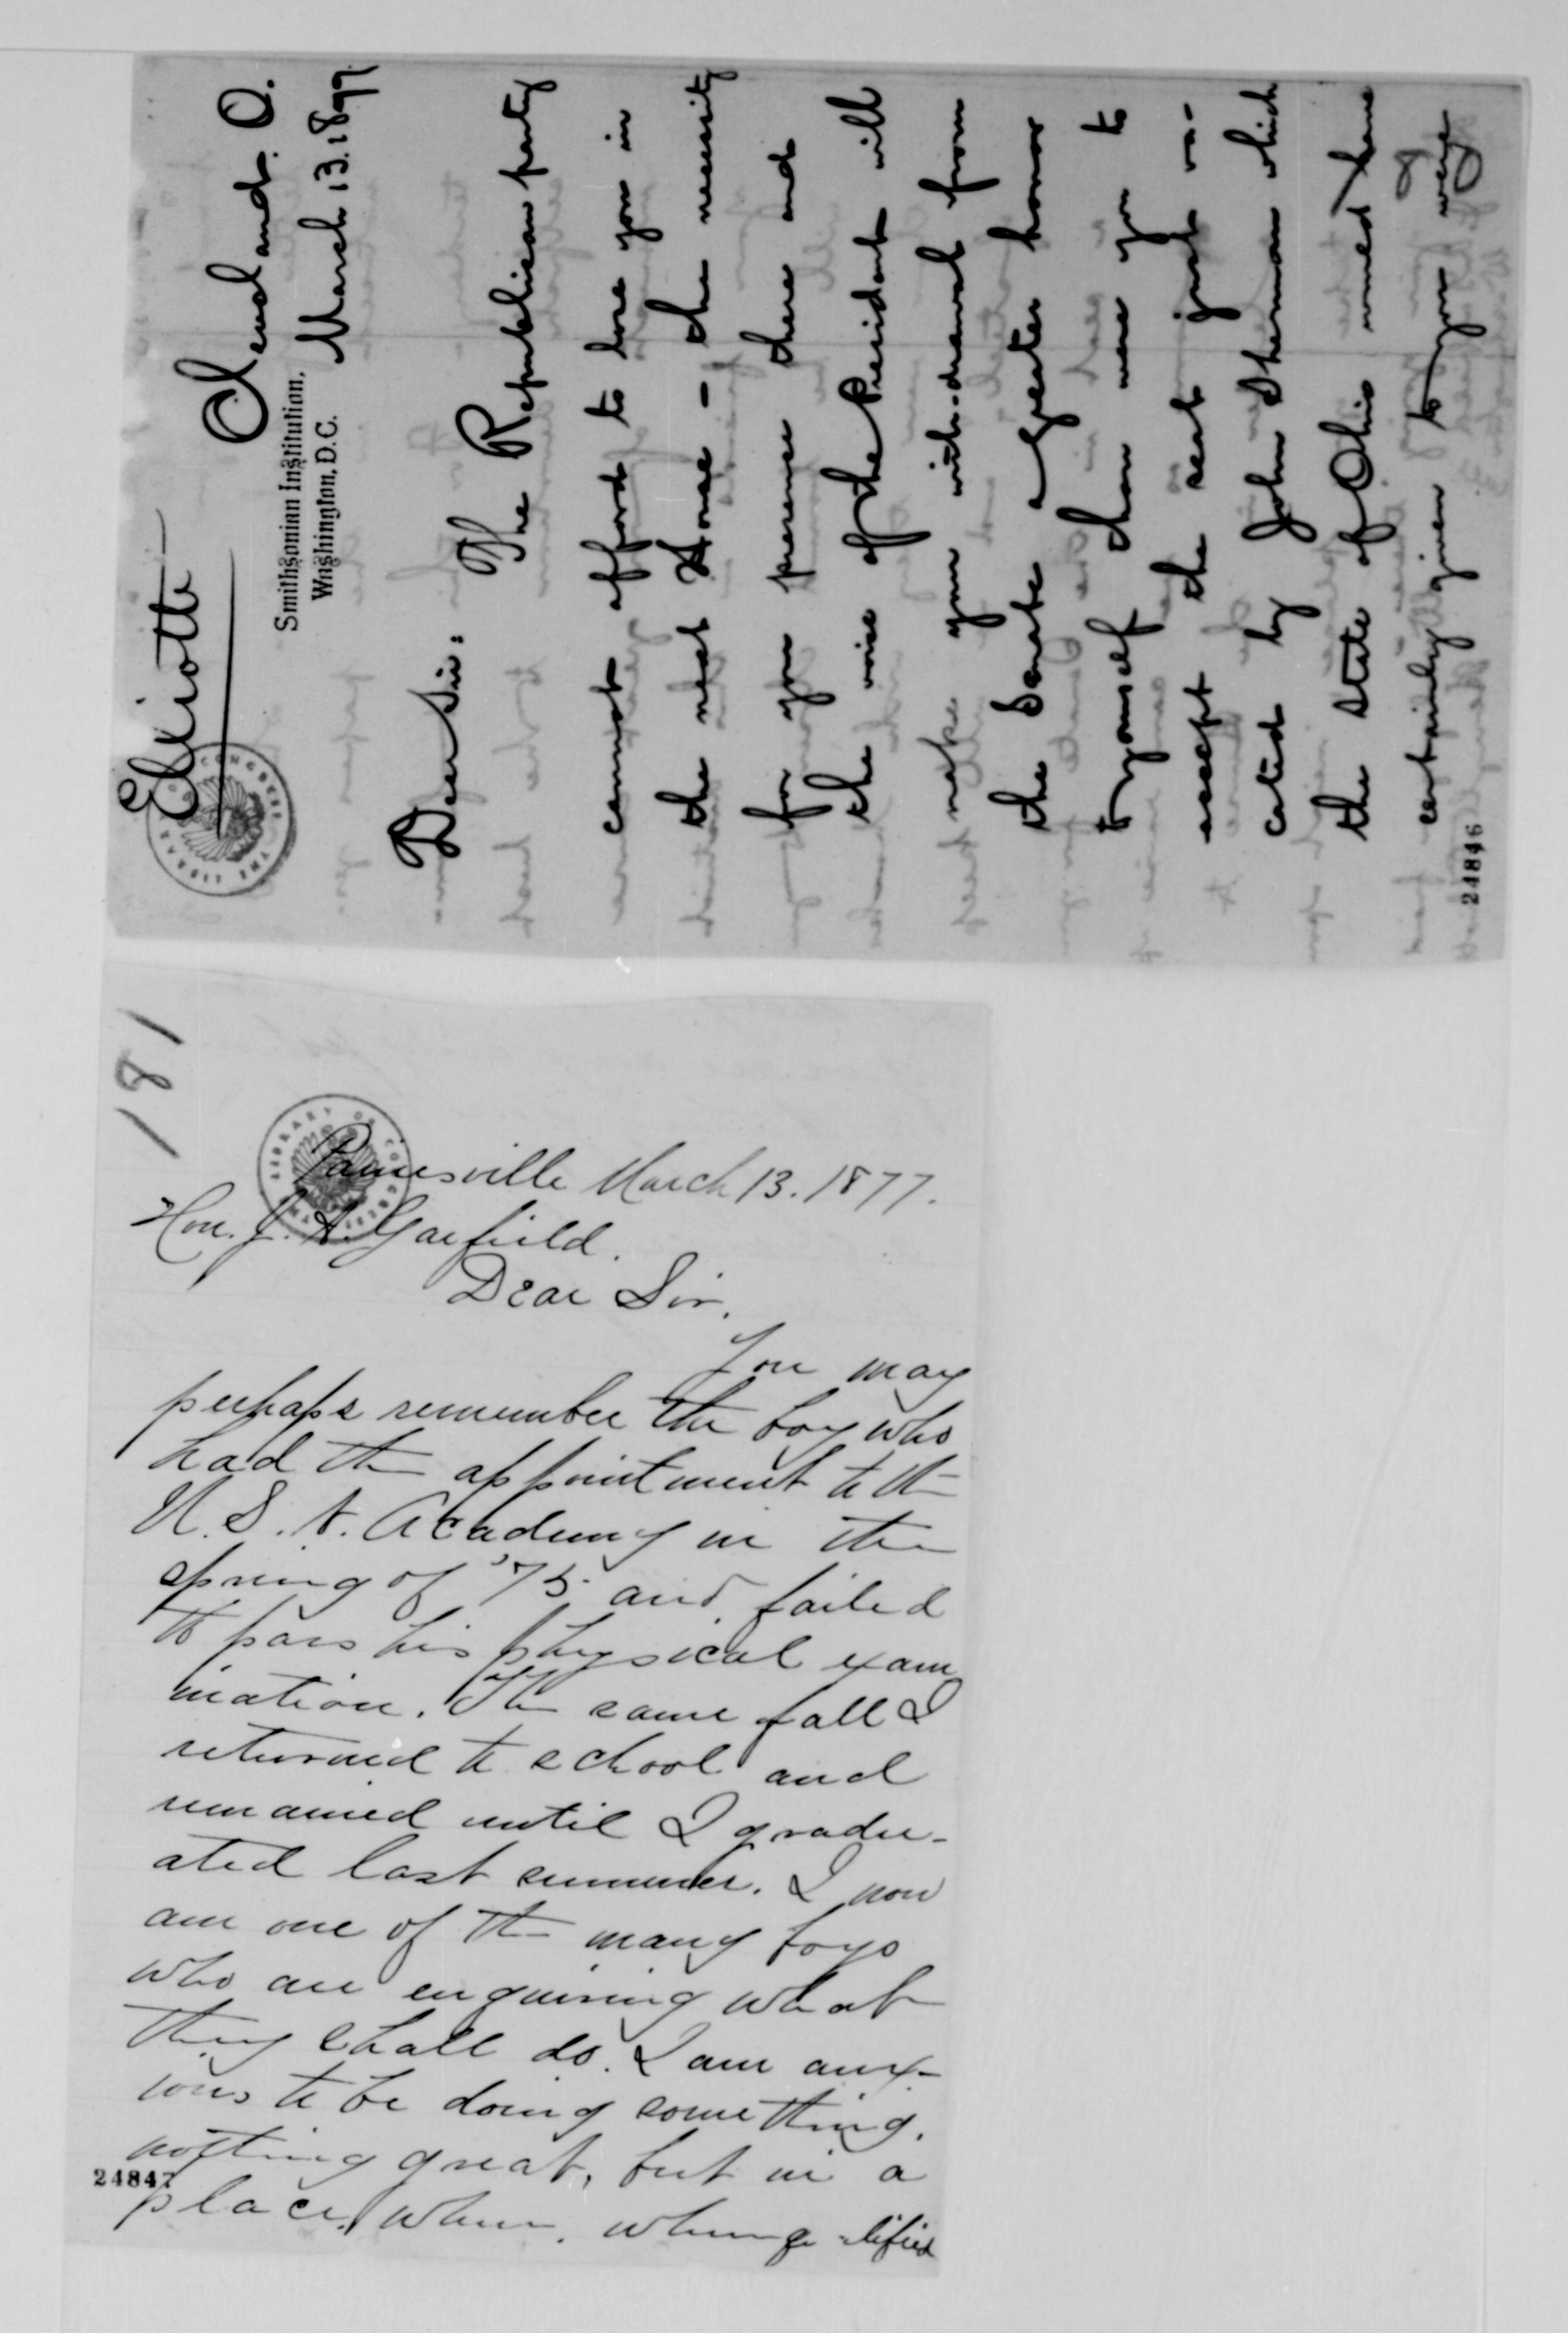 Elliott
Cleveland. O.
Smithsonian Institution.
Washington, D.C.
March 13. 1877
Dear Sir:
The Republican party
cannot afford to lose you in
the next House – the necessity
for your presence there and
the voice of the President will
make your with-drawal from
the Senate a greater honor
to yourself than were you to
accept the seat just va-
cated by John Sherman which
the State of Ohio would have
certainly given to you were
24846
181
LIBRARY OF CONGRESS
Painesville March 13. 1877.
Hon. J. A. Garfield.
Dear Sir,
You may
perhaps remember the boy who
had the appointment to the
U. S. N. Academy in the
spring of '75 and failed
to pass his physical exam
ination. The same fall I
returned to school and
remained until I gradu-
ated last summer. I now
am one of the many boys
who are enquiring what
they shall do. I am anx-
ious to be doing something.
nothing great, but in a
place, where, when qualified
24847